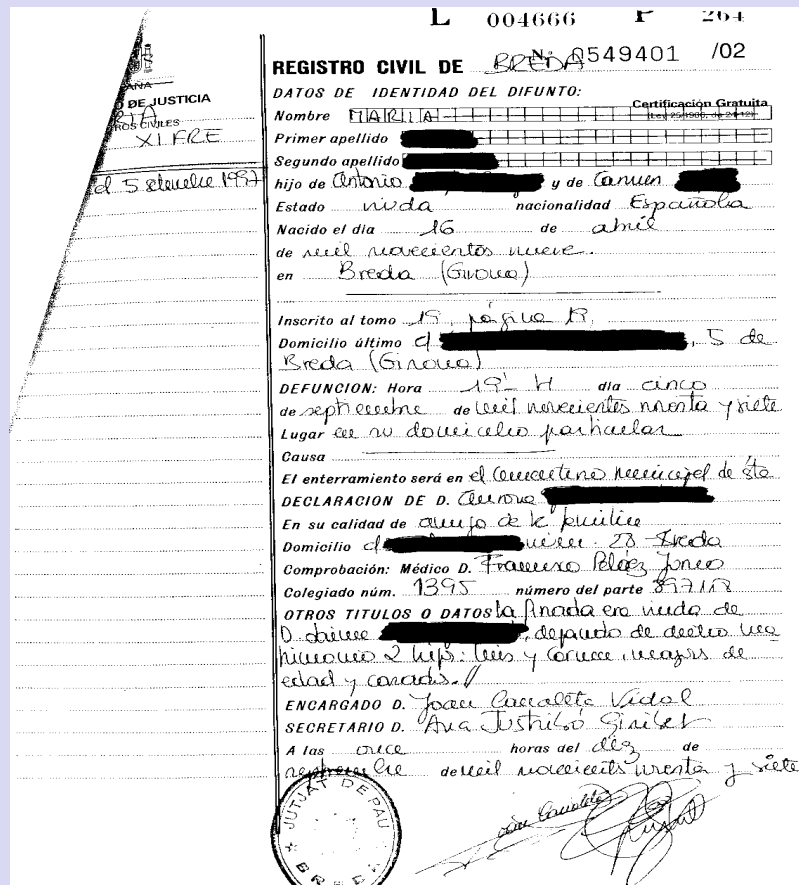 L 004666 P 264
Nº 0549401 /02
REGISTRO CIVIL DE BREDA
DATOS DE IDENTIDAD DEL DIFUNTO:
Certificación Gratuita
Nombre MARIA
Primer apellido
Segundo apellido
hijo de Antonio y de Carmen
Estado viuda nacionalidad Española
Nacido el día 16 de abril
de mil novecientos nueve.
en Breda (Girona)
Inscrito al tomo 19, página 19,
Domicilio último c/ , 5 de
Breda (Girona)
DEFUNCION: Hora 19'- H día cinco
de septiembre de mil novecientos noventa y siete
Lugar en su domicilio particular
Causa
El enterramiento será en el Cementerio municipal de ésta
DECLARACION DE D.
En su calidad de amigo de la familia
Domicilio c/ 28 - Breda
Comprobación: Médico D. Francisco Peláez
Colegiado núm. 1395 número del parte
OTROS TITULOS O DATOS la finada era viuda de
D. Jaime , dejando de dicho ma
trimonio 2 hijos: Luis y Carmen, mayores de
edad y casados.//
ENCARGADO D. Joan Vidal
SECRETARIO D. Ana Giribet
A las once horas del diez de
septiembre de mil novecientos noventa y siete
JUTJAT DE PAU
BREDA
DE JUSTICIA
ROS CIVILES
XIFRE
el 5 setembre 1997